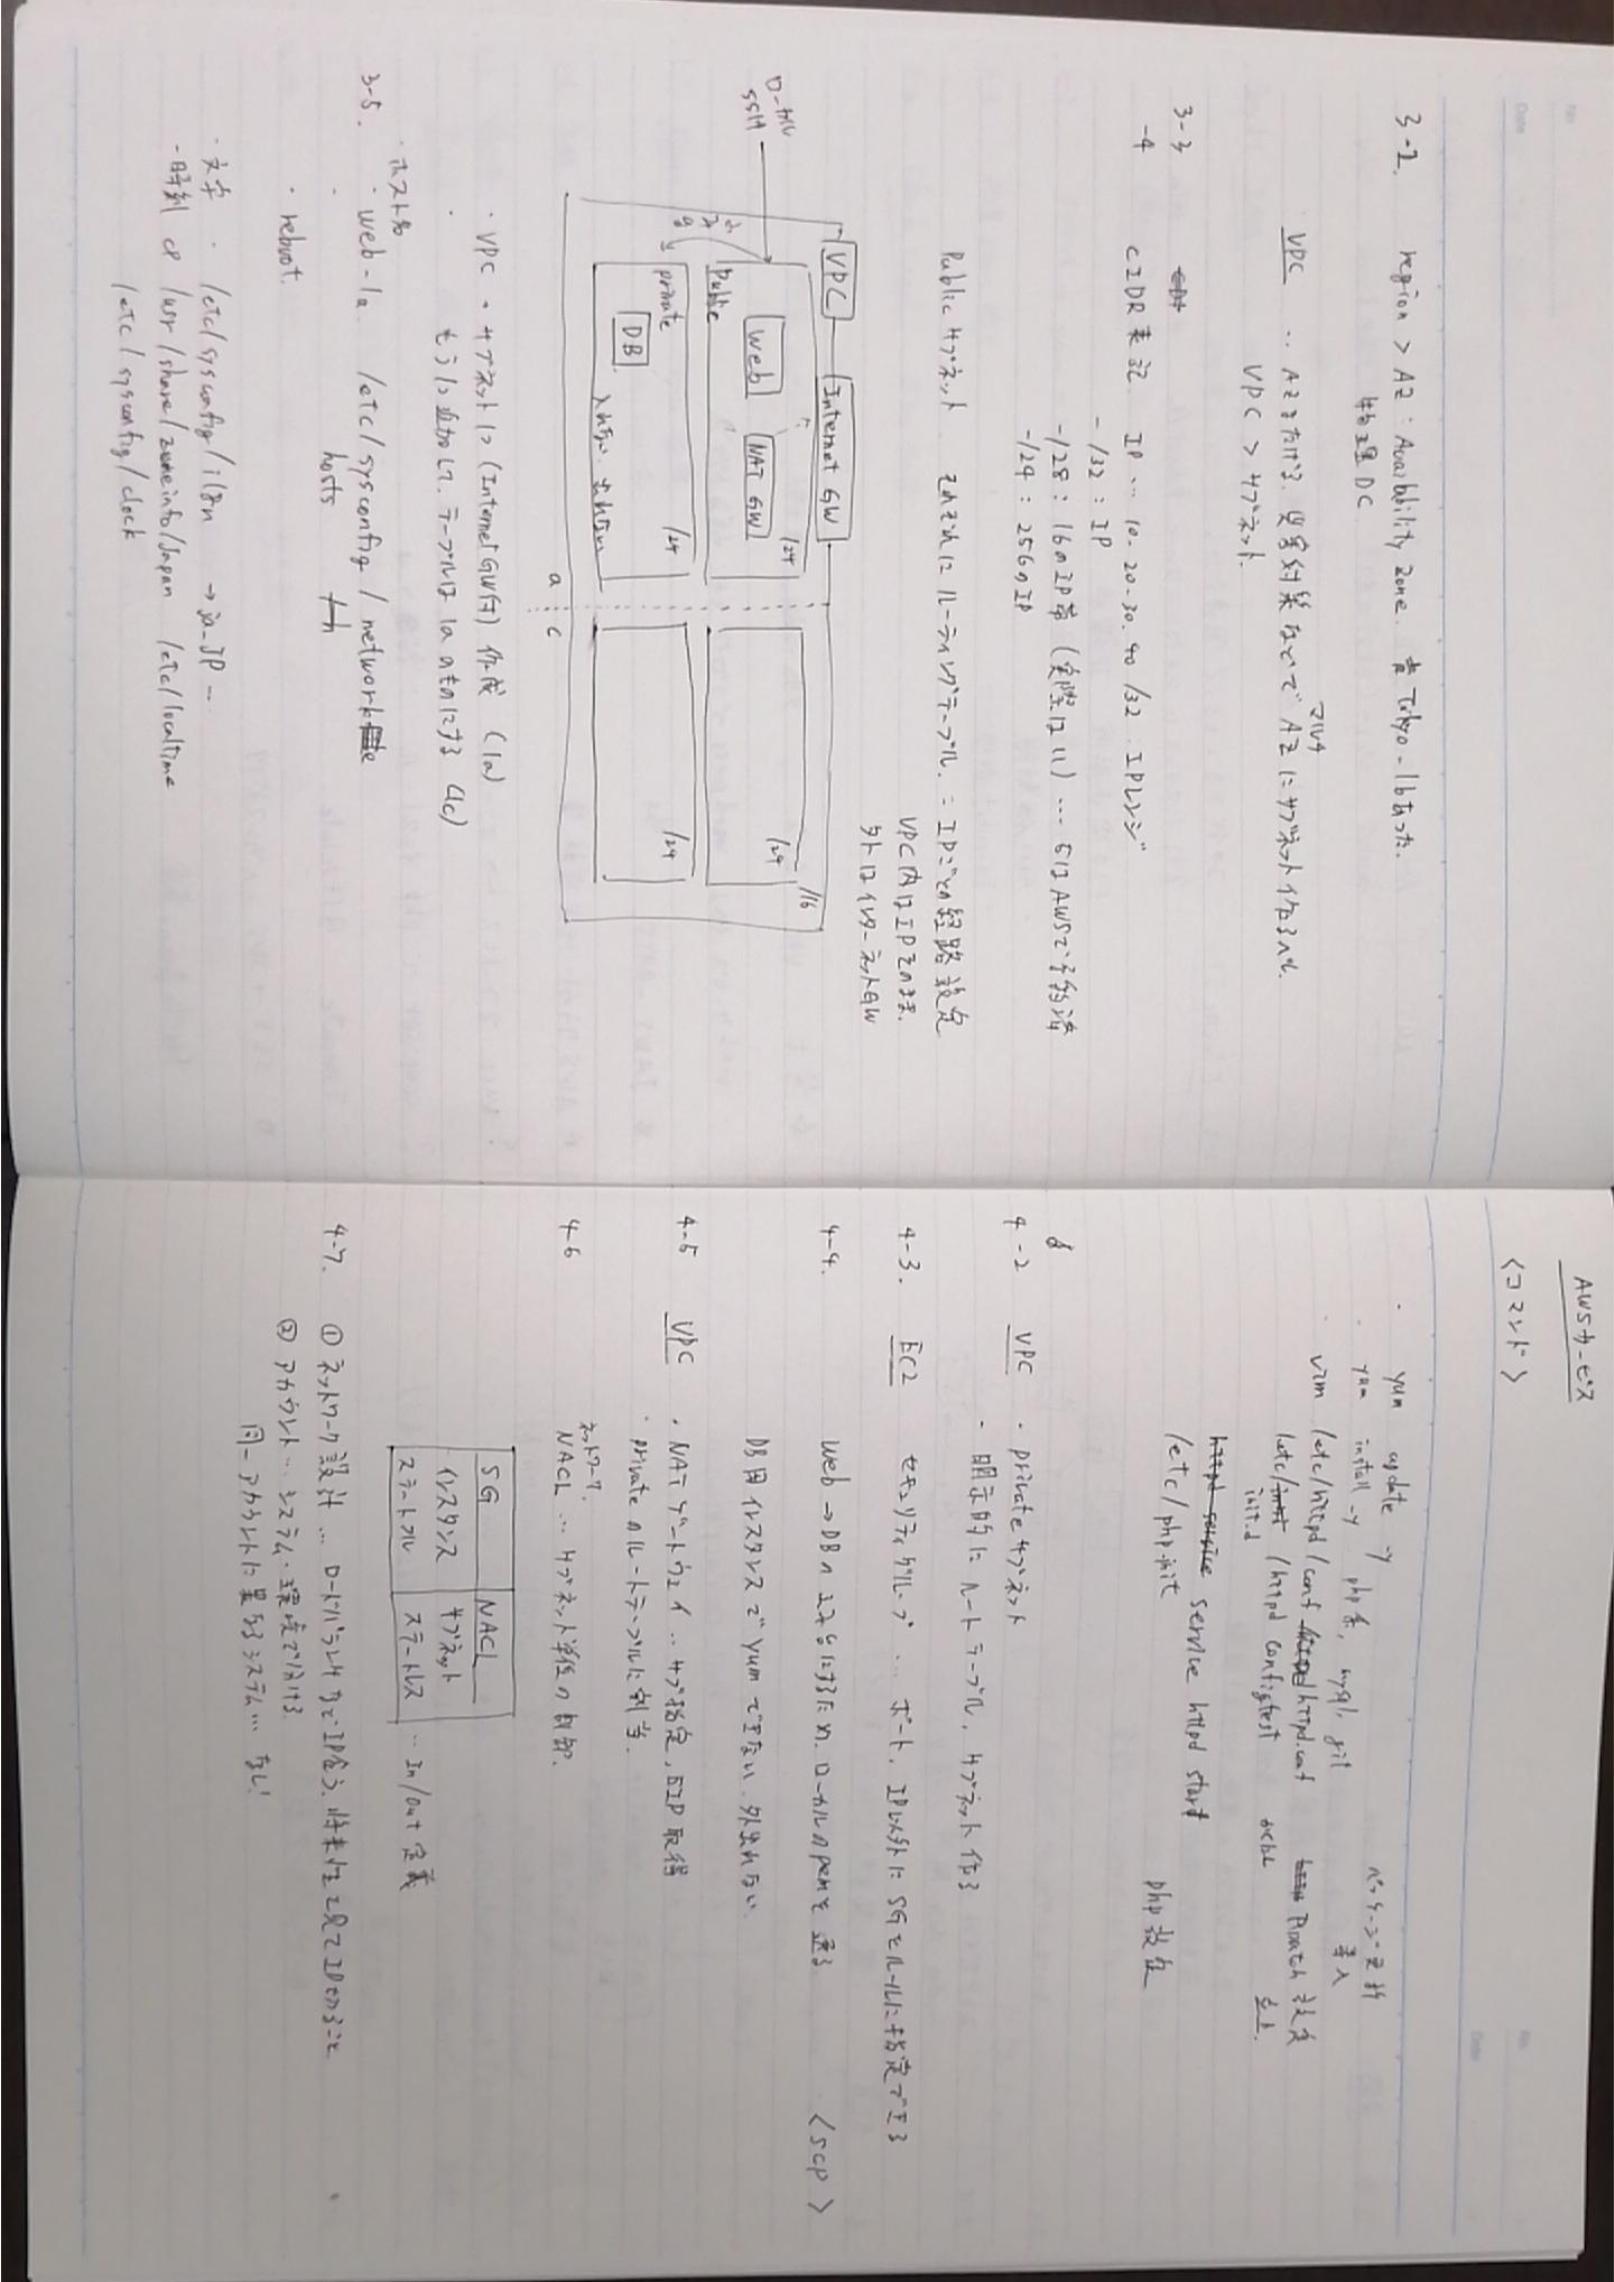 3-2. region > AZ : Availability Zone. 昔 Tokyo-1bあった.
物理DC
VPC ‥ AZをたばねる. 障害対策などで AZ にサブネット作るべし.
マルチ
VPC > サブネット.
3-3
-4 CIDR表記 IP… 10.20.30.40/32 IPレンジ
-/32 : IP
-/28 : 16のIP帯 (実際は11) … 5はAWSで予約済
-/24 : 256のIP
Public サブネット それぞれにルーティングテーブル. = IPごとの経路設定
VPC内はIPそのまま.
外はインターネットGW
VPC
Internet GW
SSH
/16
Public
Web
NAT GW
/24
/24
private
DB
/24
/24
a
c
・VPC・サブネット (Internet GW付) 作成 (1a)
テーブルは 1a のものにする (1c)
3-5. ・ホスト名
・web-1a /etc/sysconfig/network
hosts
・reboot.
・文字 ・ /etc/sysconfig/i18n → ja-JP…
・時刻 cp /usr/share/zoneinfo/Japan /etc/localtime
/etc/sysconfig/clock
AWSサービス
〈コマンド〉
・ yum update -y パッケージ更新
・ yum install -y php系, mysql, git 導入
・ vim /etc/httpd/conf httpd.conf 設定
/etc/ init.d /httpd configtest
service httpd start
/etc/php.init php設定
4-2 VPC ・private サブネット
・明示的にルートテーブル, サブネット作る
4-3. EC2 セキュリティグループ … ポート, IP以外にSGをルールに指定できる
4-4. Web→DBへ ローカルのpemを送る 〈scp〉
DB用インスタンスで yum できない. 外出れない.
4-5 VPC ・NATゲートウェイ ‥ サブ指定, IP取得
・private のルートテーブルに割当.
4-6 ネットワーク
NACL … サブネット単位の制御.
SG NACL
インスタンス サブネット
ステートフル ステートレス ‥ In/Out 定義
4-7. ① ネットワーク設計 … ロードバランサなどIP食う. 将来性を見てIPきめること
② アカウント … システム・環境で分ける.
同一アカウントに異なるシステム… なし!